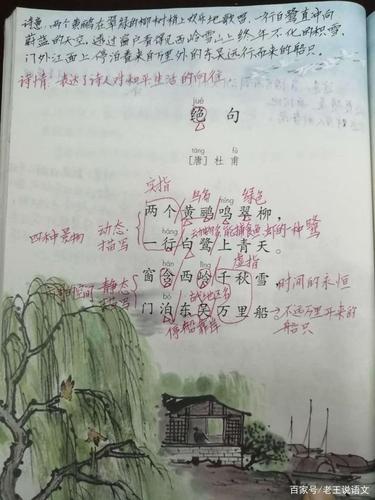 诗意:两个黄鹂在翠绿的柳树梢上欢乐地歌唱,一行白鹭直冲向
蔚蓝的天空。透过窗户看得见西岭雪山上终年不化的积雪,
门外江面上停泊着来自万里外的东吴远行而来的船只。
诗情:表达了诗人对和平生活的向往。
jué
绝 句
táng fǔ
[唐] 杜 甫
实指 鸟名 míng 绿色
两个黄鹂鸣翠柳,
四种景物 动态描写 háng 动物 能捕食鱼虾的一种鹭
一行白鹭上青天。
hán lǐng 虚指
窗含西岭千秋雪, 时间的永恒
空间 静态描写 bó 战地名
门泊东吴万里船。 不远万里开来的船只
停船靠岸
百家号/老王说语文